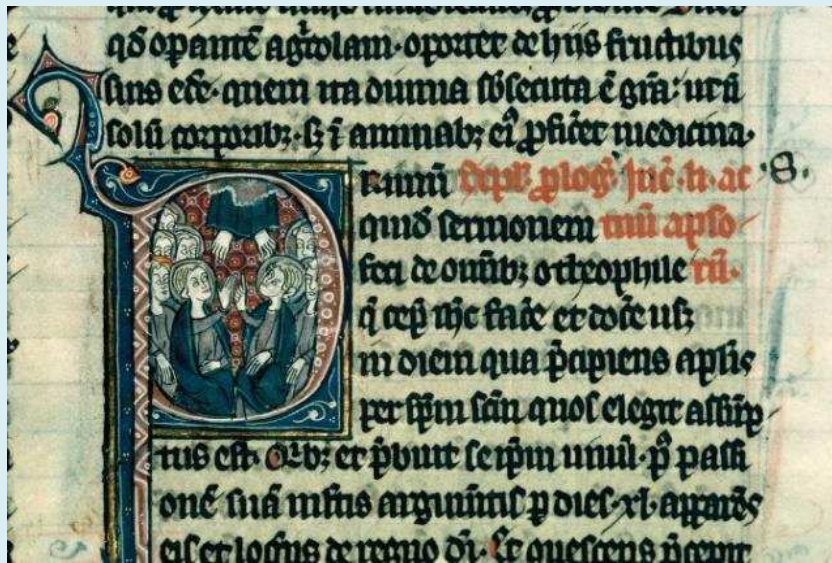 qđ opantē ag̾colam· oportet de hiis fructibus
suis edē· quem ita diuina sbsecuta ē gr̄a: ut n̄
solū corporibꝫ· sꝫ ī animabꝫ eiꝰ ꝓficēt medicina·
rimū Expł ꝓlog̾ Inc̄· li· ac ·S·
quidē sermonem tuū apl̄o
feci de omībꝫ o theophile rū·
q̄ cep̄ ih̄c facē et docē usꝫ
in diem qua p̄cipiens apl̄is
per sp̄m sc̄m quos elegit assūp
tus est· Quibꝫ et p̄buit seip̄m uiuū· p̄ passi
onē suā in ml̄tis argum̄tis p̄ dies· xl· apparēs
eis et loq̄ns de regno dī· Et ꝯuescens p̄cepit